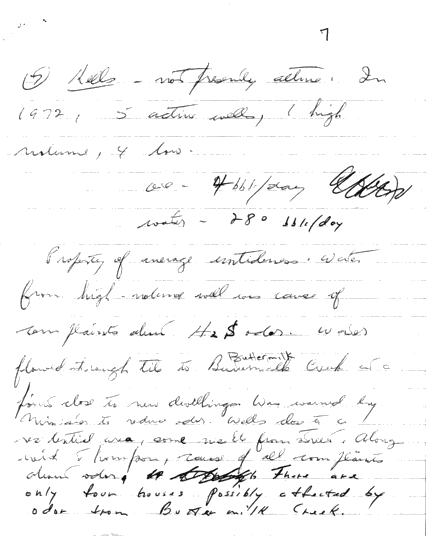 7
(5) Wells - not presently active. In
1972, 5 active wells, 1 high
volume, 4 low.
oil - 4 bbl/day
water - 280 bbls/day
Property of average untidiness. Water
from high-volume well was cause of
complaints about H2S odor. Water
flowed through tile to Buttermilk Creek at a
point close to new dwellings. Was warned by
to reduce odor. Wells close to a
residential area, some from street. Along
with Thompson, cause of all complaints
about odor, There are
only four houses possibly affected by
odor from Buttermilk Creek.